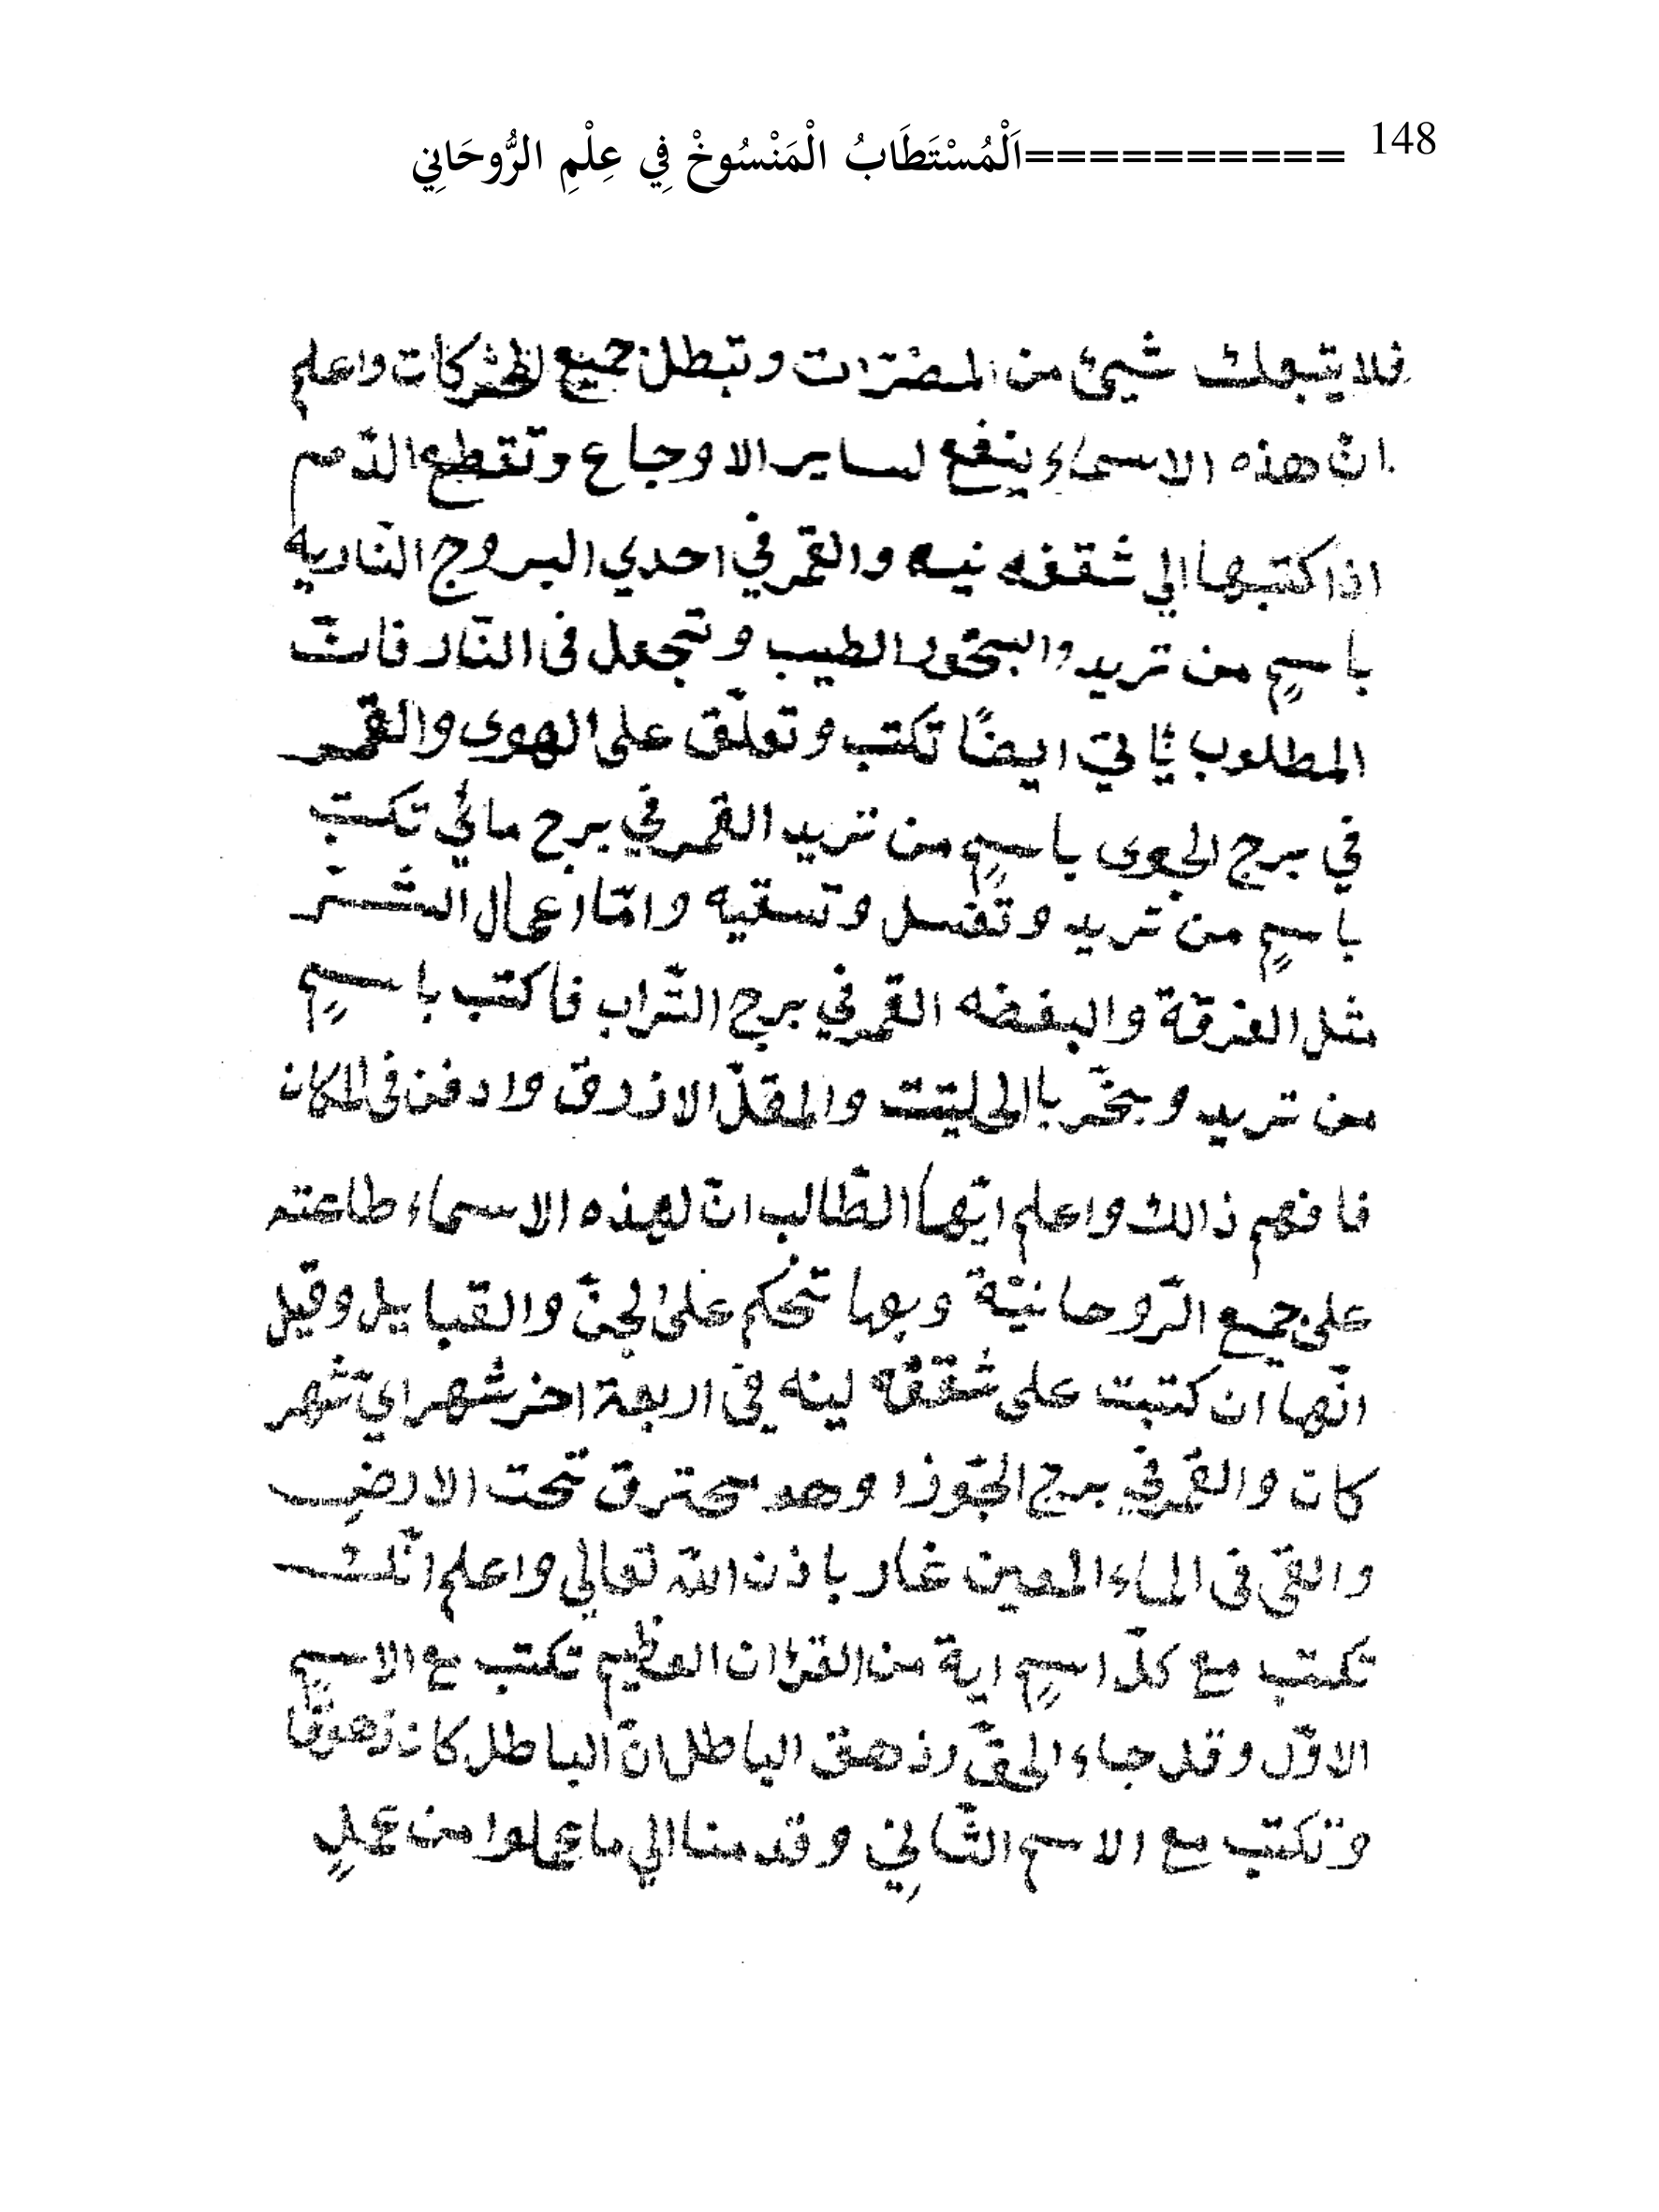 148 ==========اَلْمُسْتَطَابُ الْمَنْسُوخْ فِي عِلْمِ الرُّوحَانِي
فلا يتبعك شيئ من المضرّات وتبطل جميع واعلم
انّ هذه الاسماء ينفع لساير الاوجاع وتقطع الدّم
اذا كتبها الي شقفه نيه والقمر في احدي البروج النّاريه
باسمٍ من تريد والبخور الطيب وتجعل فى النّار فانّ
المطلوب ياتي ايضًا تكتب وتعلّق على الهوى والقمر
في برج الجوى باسمٍ من تريد القمر في برج مائي تكتب
باسمٍ من تريد وتغسل وتسقيه وامّا اعمال الشّر
مثل الفرقة والبغضه القمر في برج التّراب فاكتب باسمٍ
من تريد وبخّر باالحليتت والمقلّ الازرق وادفن فى المكان
فافهم ذالك واعلم ايّها الطّالب انّ لهذه الاسماء طاعته
على جميع الرّوحانيّة وبها تحكم على الجنّ والقبايل وقيل
انّها ان كتبت على شقفه لينه في اربعة اخر شهر اي شهر
كان والقمر في برج الجوزا وهو محترق تحت الارض
والقى فى الماء المعين غار باذن اللّه تعالي واعلم انّك
تكتب مع كلّ اسمٍ اية من القرءان العظيم تكتب مع الاسم
الاوّل وقل جاء الحقّ وزهق الباطل انّ الباطل كان زهوقًا
وتكتب مع الاسم الثّاني وقدمنا الي ما عملوا من عملٍ